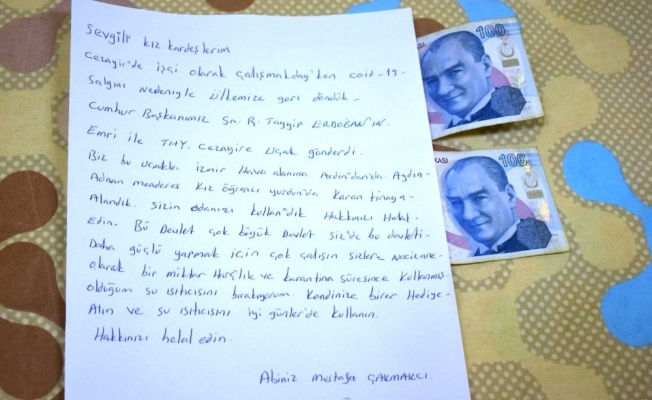 Sevgili kız kardeşlerim
Cezayir'de işçi olarak çalışmakday'ken coid-19-
Salgını nedeniyle ülkemize geri döndük-
Cumhur Başkanımız Sn. R. Tayyip ERDOĞAN'IN.
Emri ile THY. Cezayire Uçak gönderdi.
Biz bu uçakla izmir Hava alanına Ardın'dan'da. Aydın-
Adnan menderes Kız öğrenci yurdun'da Karantinaya-
Alındık. Sizin odanızı kullan'dık Hakkınızı Helal-
Edin. Bu Devlet çok büyük Devlet Siz'de bu devleti-
Daha güçlü yapmak için çok çalışın sizlere nacizane-
olarak bir miktar Harçlık ve karantina süresince kullanmış-
olduğum su ısıtıcısını bırakıyorum. Kendinize birer Hediye-
Alın ve su ısıtıcısını iyi günler'de kullanın.
Hakkınızı helal edin.
Abiniz Mustafa ÇAKMAKCI.
100
KASI
100